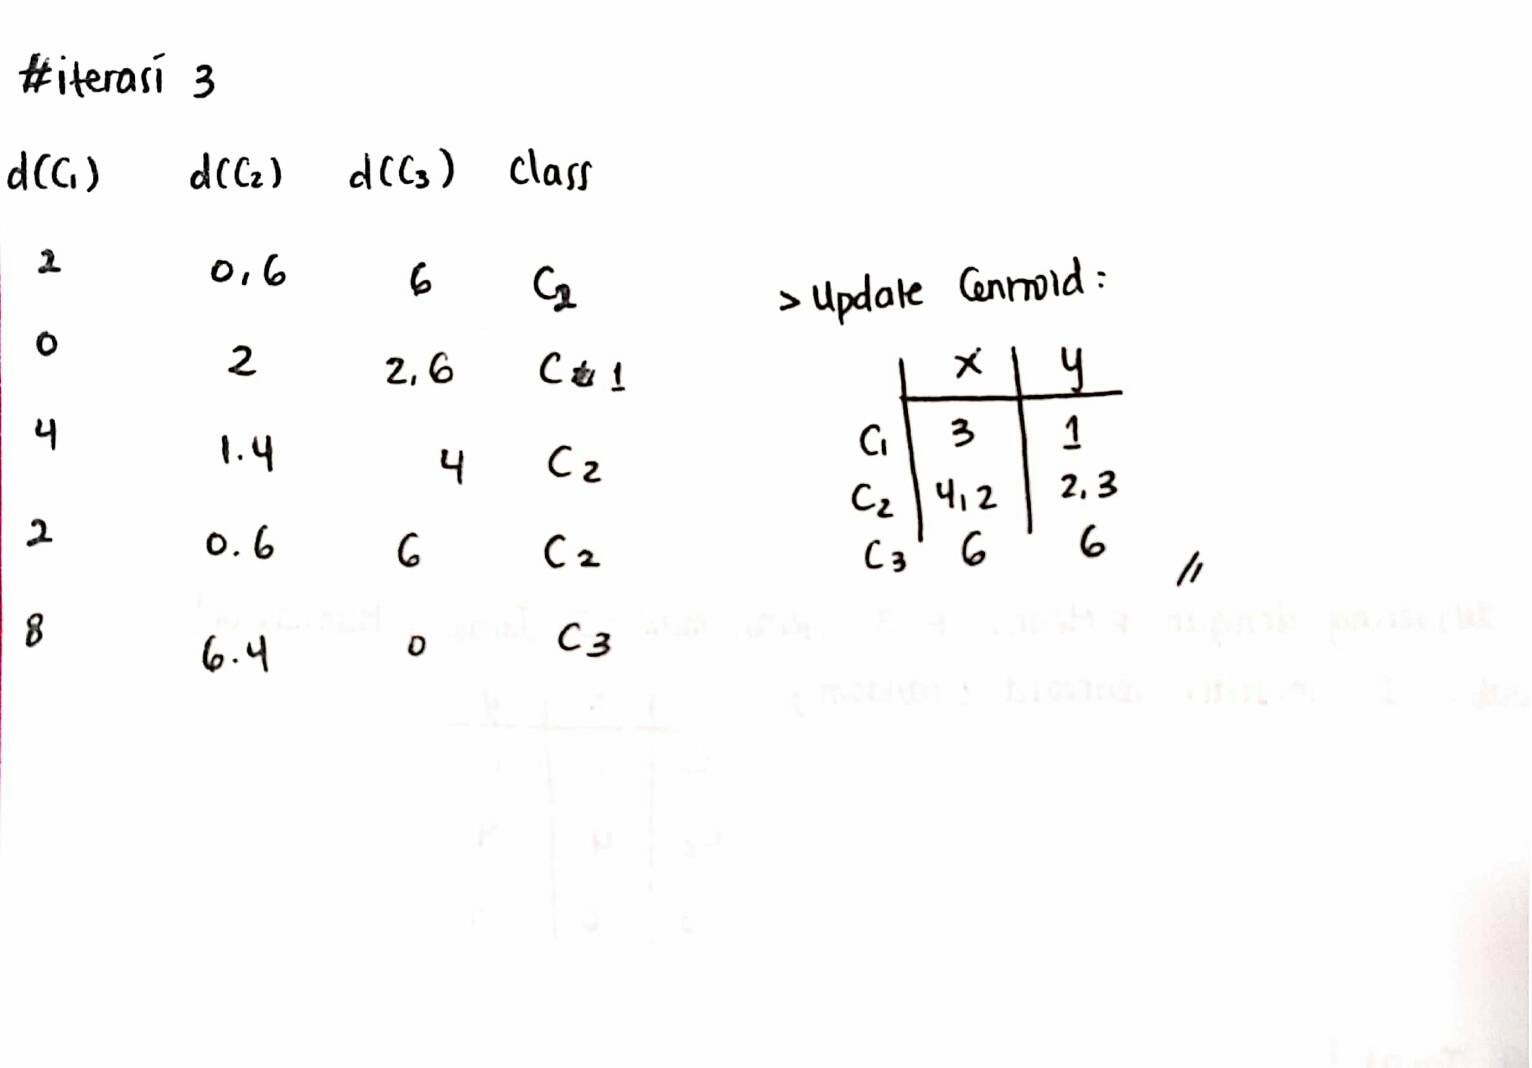 #iterasi 3
d(C1) d(C2) d(C3) Class
2 0,6 6 C2
0 2 2,6 C 1
4 1.4 4 C2
2 0.6 6 C2
8 6.4 0 C3
> Update Centroid:
x y
C1 3 1
C2 4,2 2,3
C3 6 6 //